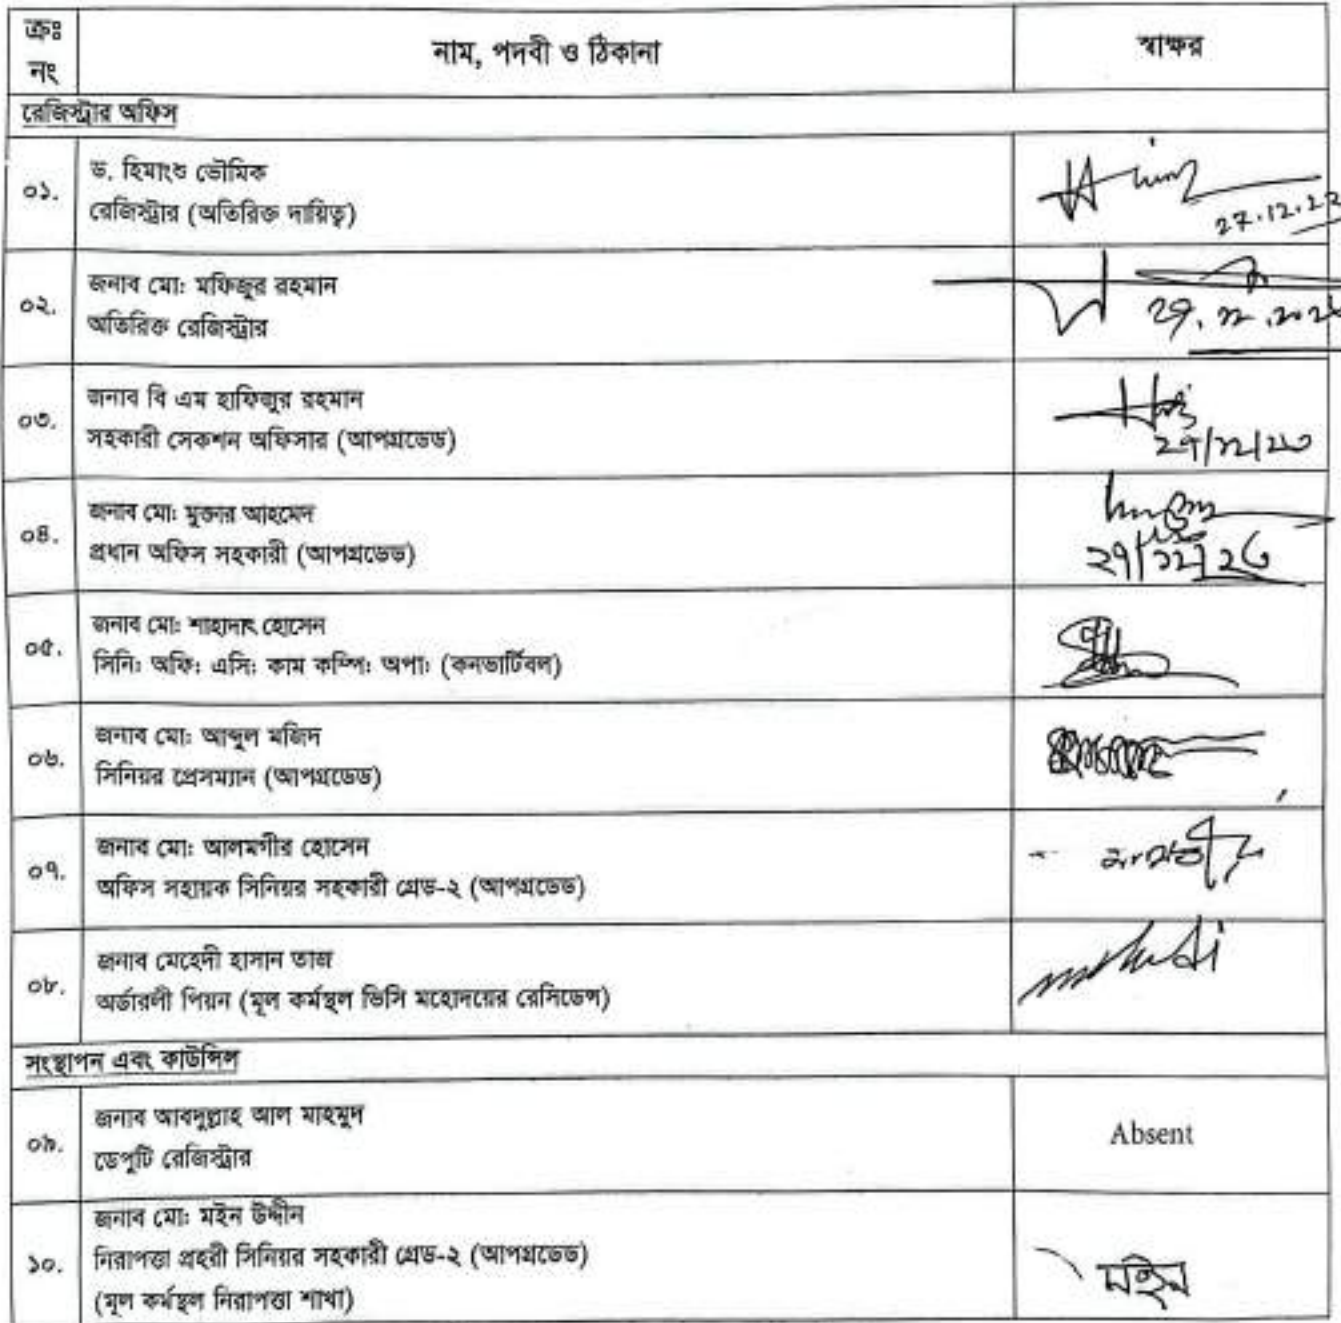 ক্রঃ
নং
নাম, পদবী ও ঠিকানা
স্বাক্ষর
রেজিস্ট্রার অফিস
০১.
ড. হিমাংশু ভৌমিক
রেজিস্ট্রার (অতিরিক্ত দায়িত্ব)
27.12.22
০২.
জনাব মো: মফিজুর রহমান
অতিরিক্ত রেজিস্ট্রার
০৩.
জনাব বি এম হাফিজুর রহমান
সহকারী সেকশন অফিসার (আপগ্রডেড)
০৪.
জনাব মো: মুক্তার আহমেদ
প্রধান অফিস সহকারী (আপগ্রডেড)
০৫.
জনাব মো: শাহাদাৎ হোসেন
সিনি: অফি: এসি: কাম কম্পি: অপা: (কনভার্টিবল)
০৬.
জনাব মো: আব্দুল মজিদ
সিনিয়র প্রেসম্যান (আপগ্রডেড)
০৭.
জনাব মো: আলমগীর হোসেন
অফিস সহায়ক সিনিয়র সহকারী গ্রেড-২ (আপগ্রডেড)
০৮.
জনাব মেহেদী হাসান তাজ
অর্ডারলী পিয়ন (মূল কর্মস্থল ভিসি মহোদয়ের রেসিডেন্স)
সংস্থাপন এবং কাউন্সিল
০৯.
জনাব আবদুল্লাহ আল মাহমুদ
ডেপুটি রেজিস্ট্রার
Absent
১০.
জনাব মো: মইন উদ্দীন
নিরাপত্তা প্রহরী সিনিয়র সহকারী গ্রেড-২ (আপগ্রডেড)
(মূল কর্মস্থল নিরাপত্তা শাখা)
মইন